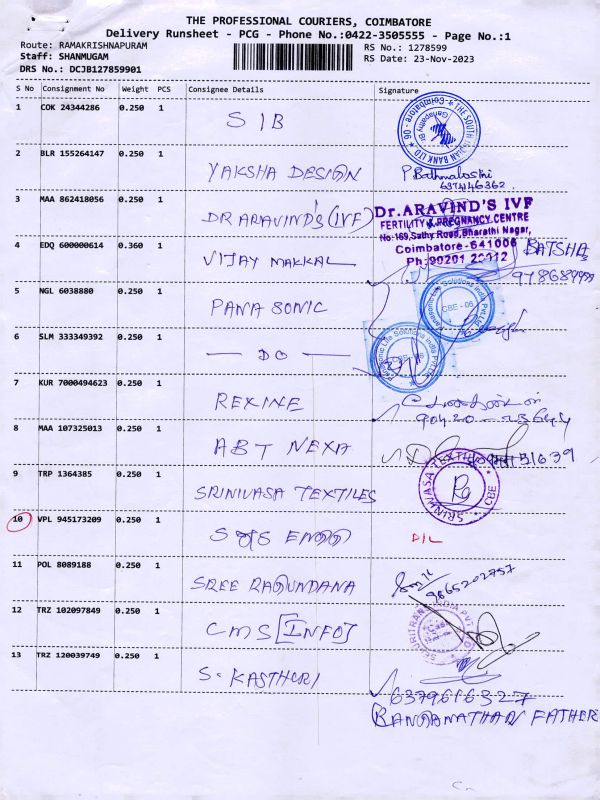 THE PROFESSIONAL COURIERS, COIMBATORE
Delivery Runsheet - PCG - Phone No.:0422-3505555 - Page No.:1
Route: RAMAKRISHNAPURAM
Staff: SHANMUGAM
DRS No.: DCJB127859901
RS No.: 1278599
RS Date: 23-Nov-2023
S No Consignment No Weight PCS Consignee Details Signature
1 COK 24344286 0.250 1 SIB
THE SOUTH INDIAN BANK LTD * Coimbatore - 06 *
2 BLR 155264147 0.250 1 YAKSHA DESIGN
3 MAA 862418056 0.250 1 DR ARAVIND'S (IVF)
Dr.ARAVIND'S IVF
FERTILITY & PREGNANCY CENTRE
No:169,Sathy Road,Bharathi Nagar,
Coimbatore-641006
Ph:
4 EDQ 600000614 0.360 1 VIJAY MAKKAL BATSHA
5 NGL 6038880 0.250 1 PANASONIC
Panasonic Life Solutions India Pvt.Ltd
CBE - 06
6 SLM 333349392 0.250 1 — DO —
Panasonic Life Solutions India Pvt.Ltd
CBE - 06
7 KUR 7000494623 0.250 1 REXINE
8 MAA 107325013 0.250 1 ABT NEXA
9 TRP 1364385 0.250 1 SRINIVASA TEXTILES
SRINIVASA TEXTILES
CBE
10 VPL 945173209 0.250 1 D/L
11 POL 8089188 0.250 1 SREE RAGUNDANA
9865202757
12 TRZ 102097849 0.250 1 CMS [INFO]
13 TRZ 120039749 0.250 1 S. KASTHURI
6379616327
RANGANATHAN FATHER